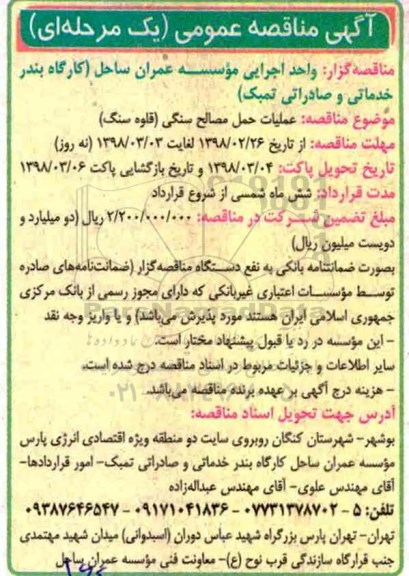 آگهی مناقصه عمومی (یک مرحله‌ای)
مناقصه‌گزار: واحد اجرایی مؤسسه عمران ساحل (کارگاه بندر
خدماتی و صادراتی تمبک)
موضوع مناقصه: عملیات حمل مصالح سنگی (قلوه سنگ)
مهلت مناقصه: از تاریخ ۱۳۹۸/۰۲/۲۶ لغایت ۱۳۹۸/۰۳/۰۳ (نه روز)
تاریخ تحویل پاکت: ۱۳۹۸/۰۳/۰۴ و تاریخ بازگشایی پاکت ۱۳۹۸/۰۳/۰۶
مدت قرارداد: شش ماه شمسی از شروع قرارداد
مبلغ تضمین شرکت در مناقصه: ۲/۲۰۰/۰۰۰/۰۰۰ ریال (دو میلیارد و
دویست میلیون ریال)
بصورت ضمانتنامه بانکی به نفع دستگاه مناقصه‌گزار (ضمانت‌نامه‌های صادره
توسط مؤسسات اعتباری غیربانکی که دارای مجوز رسمی از بانک مرکزی
جمهوری اسلامی ایران هستند مورد پذیرش می‌باشد) و یا واریز وجه نقد
- این مؤسسه در رد یا قبول پیشنهاد مختار است.
سایر اطلاعات و جزئیات مربوط در اسناد مناقصه درج شده است.
- هزینه درج آگهی بر عهده برنده مناقصه می‌باشد.
آدرس جهت تحویل اسناد مناقصه:
بوشهر- شهرستان کنگان روبروی سایت دو منطقه ویژه اقتصادی انرژی پارس
مؤسسه عمران ساحل کارگاه بندر خدماتی و صادراتی تمبک- امور قراردادها-
آقای مهندس علوی- آقای مهندس عبداله‌زاده
تلفن: ۵ - ۰۷۷۳۱۳۷۸۷۰۲ - ۰۹۱۷۱۰۴۱۸۳۶ - ۰۹۳۸۷۶۴۶۵۴۷
تهران- تهران پارس بزرگراه شهید عباس دوران (استیدوانی) میدان شهید مهتمدی
جنب قرارگاه سازندگی قرب نوح (ع)- معاونت فنی مؤسسه عمران ساحل